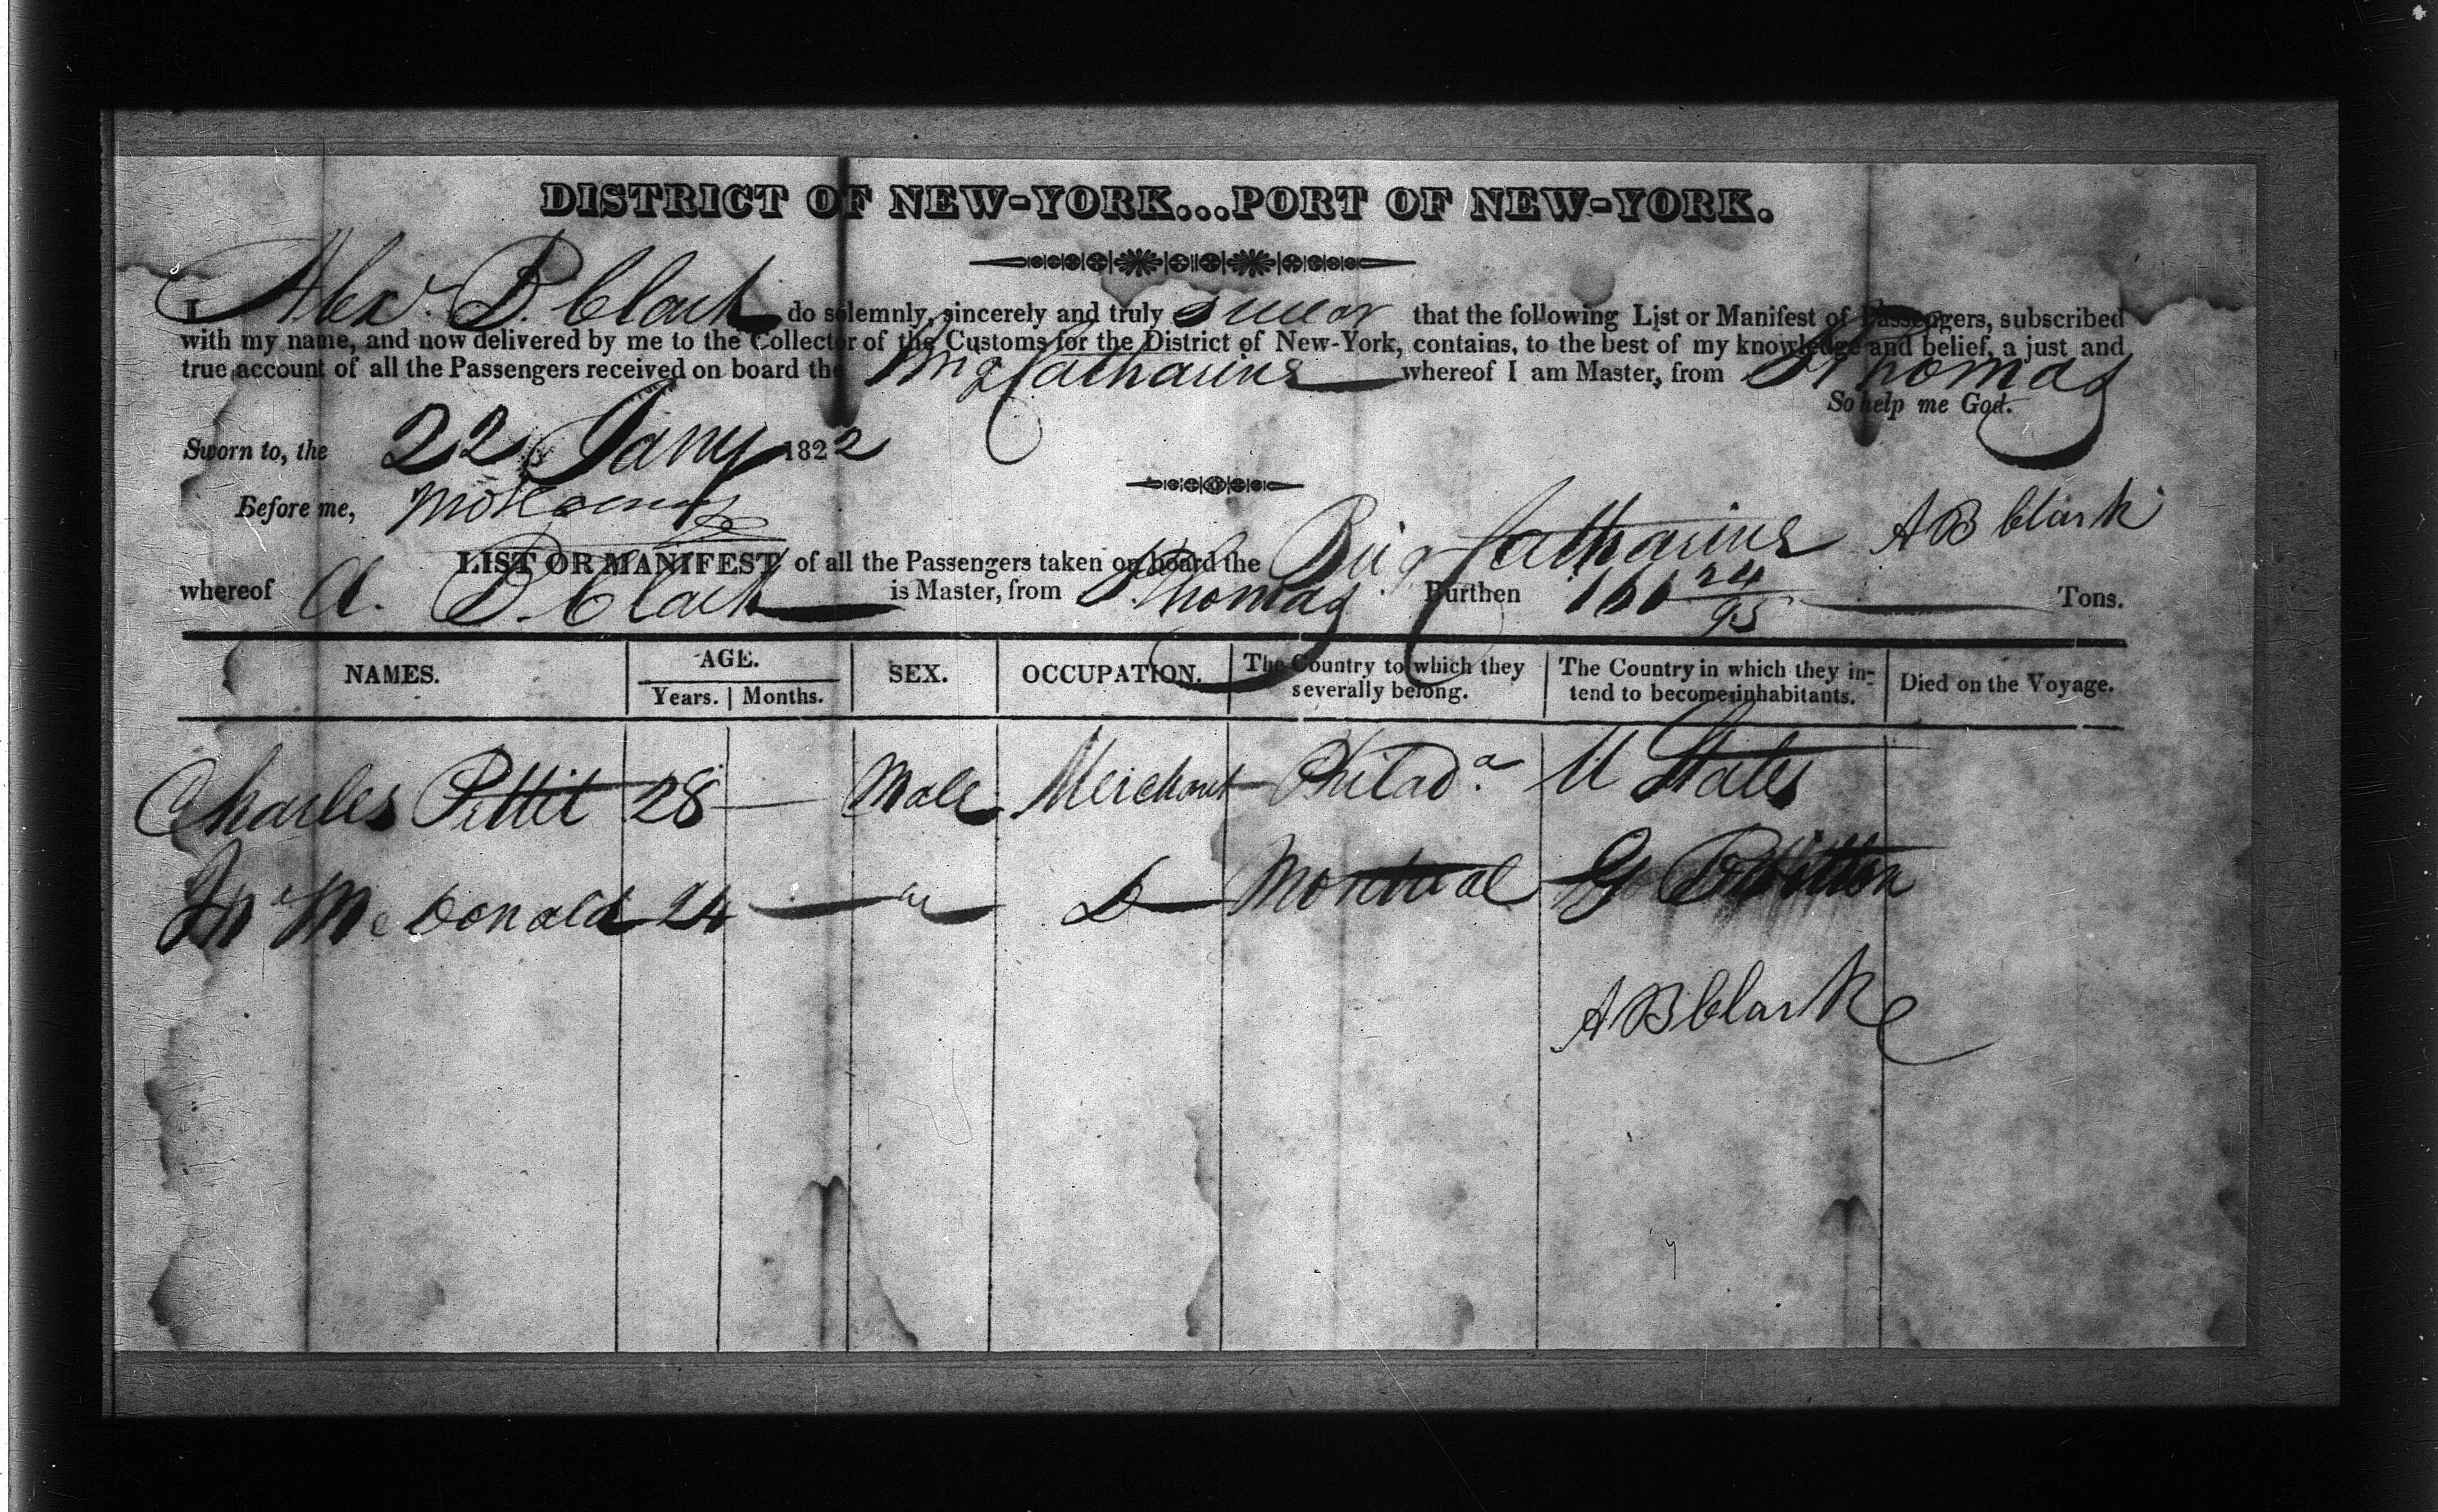 DISTRICT OF NEW-YORK...PORT OF NEW-YORK.
I Alexr. B. Clark do solemnly, sincerely and truly swear that the following List or Manifest of Passengers, subscribed
with my name, and now delivered by me to the Collector of the Customs for the District of New-York, contains, to the best of my knowledge and belief, a just and
true account of all the Passengers received on board the Brig Catharine whereof I am Master, from St Thomas
So help me God.
Sworn to, the 22 Jany 1822
Before me,
A B Clark
LIST OR MANIFEST of all the Passengers taken on board the Brig Catharine
whereof A. B. Clark is Master, from St Thomas Burthen 161 24/95 Tons.
NAMES. AGE. SEX. OCCUPATION. The Country to which they severally belong. The Country in which they in-tend to become inhabitants. Died on the Voyage.
Years. Months.
Charles Pettit 28 — Male Merchant Philada. U States
Jno McDonald 24 — " Do Montreal G Brittan
A B Clark